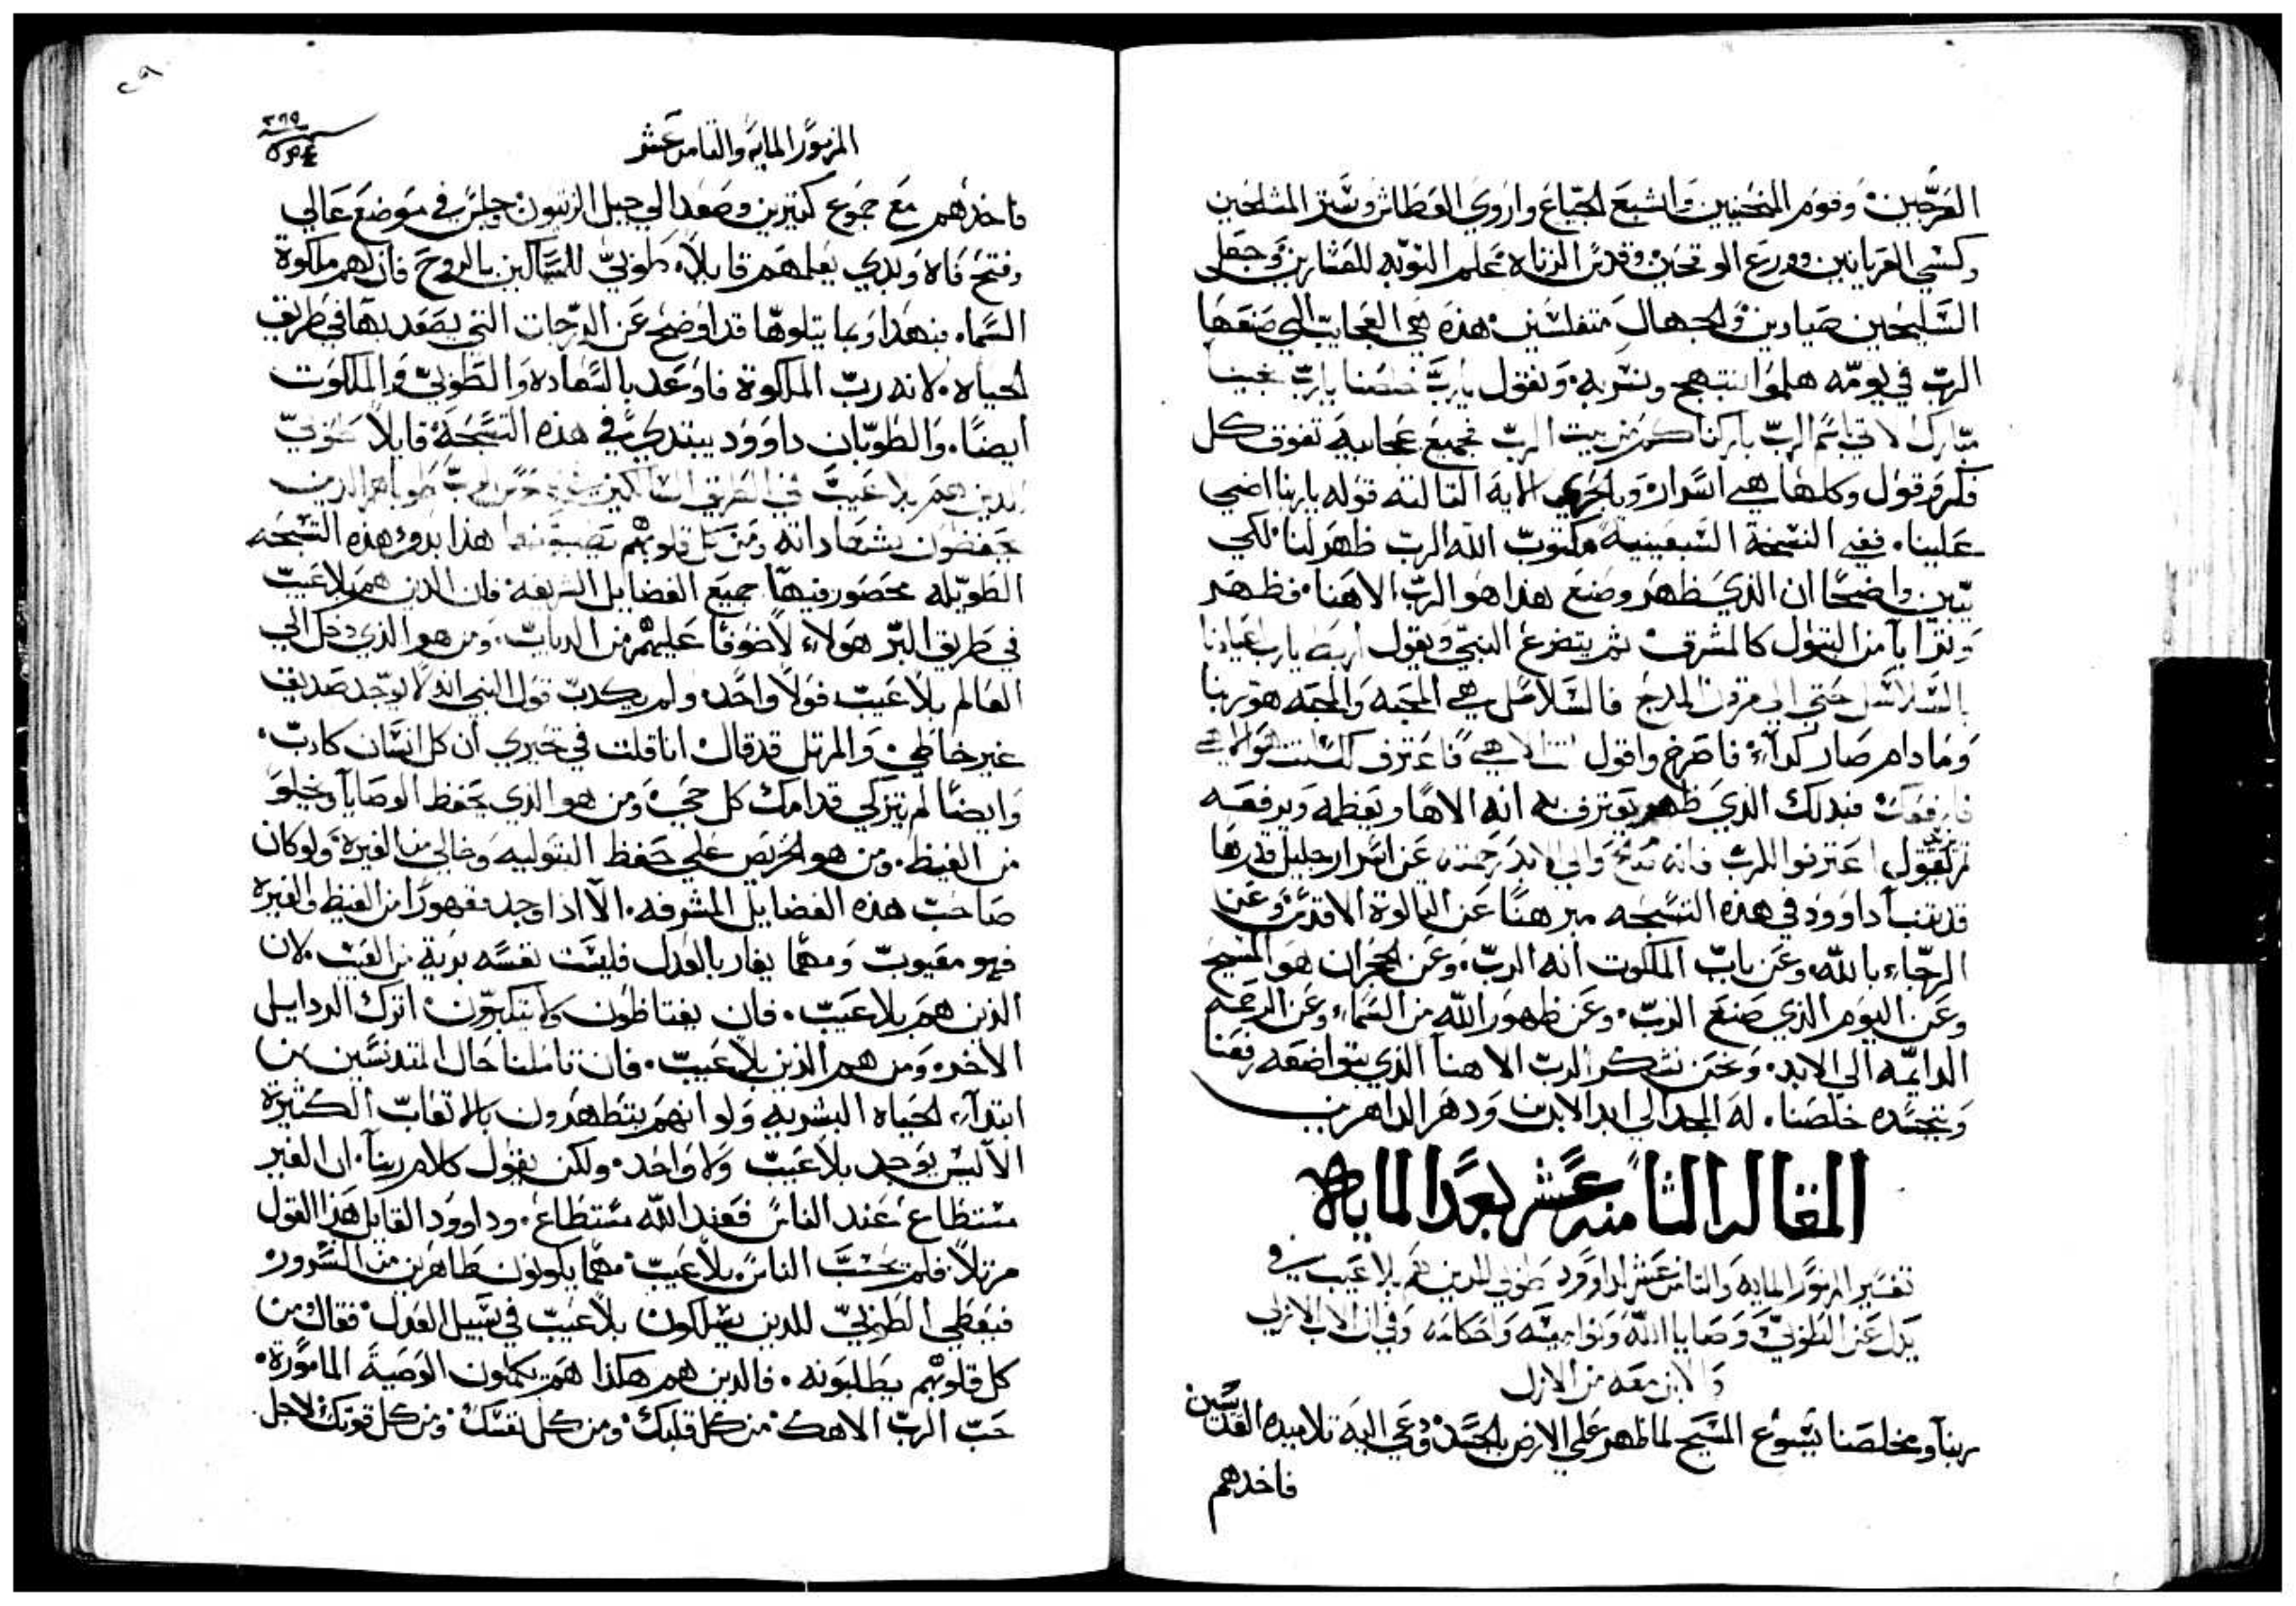 العَرَّجِين وقوّم المنحنيين واشبع الجيّاع واروي العطاش وستر المشلحين
وكسي العريانين وورع الوقحين وقدس الزناه علم التوبه للعشارين وجعل
السليحين صيادين والجهال متفلسفين هذه هي العجايب التي صنعها
الرب في يومه هلموا نبتهج ونسر به ونقول يارب خلصنا يارب نجينا
مبارك الاتي باسم الرب باركناكم من بيت الرب فجميع عجايبه تفوق كل
فكر وقول وكلها هي اسرار وبالحري الاية التالته قوله ياربنا اضي
علينا. ففي النسخة السبعينية مكتوب الله الرب ظهر لنا لكي
تبين واضحًا ان الذي ظهر وصنع هذا هو الرب الاهنا فظهر
وترايا من البتول كالمشرق ثم يتضرع النبي ويقول اربط يارب اعيادنا
بالسلاسل حتي الي قرون المدبح فالسلاسل هي المحبه والمحبه هو ربنا
وما دام صار كدآء فاصرخ واقول انت الاهي فاعترف لك انت هو الاهي
فارفعك فبدلك الذي ظهر يعترف به انه الاهًا ويعظمه ويرفعه
ثم يقول اعترفوا للرب فانه صالح والي الابد رحمته عن اسرار جليل قدرها
قد تنبآ داوود في هذه التسبحه مبرهنًا عن التالوة الاقدس وعن
الرجاء بالله وعن باب الملكوت انه الرب. وعن الحجر ان هو المسيح
وعن اليوم الذي صنع الرب. وعن ظهور الله من السماء وعن الرحمه
الدايمه الي الابد. ونحن نشكر الرب الاهنا الذي بتواضعه رفعنا
وبتجسده خلصنا. له المجد الي ابد الابدين ودهر الداهرين
المقاله الثامنه عشر بعد المايه
تفسير المزمور المايه والتامن عشر لداوود طوبي للدين هم بلا عيب في
يدل عن الطوبي ووصايا الله ونواميسه واحكامه وفي ان الاب الازلي
والابن معه من الازل
ربنا ومخلصنا يسوع المسيح لما ظهر علي الارض بالجسد ودعي اليه تلاميده القديسين
فاخدهم
٢٦٥
٥٩٤
المزمور المايه والتامن عشر
فاخدهم مع جموع كتيرين وصعد الي جبل الزيتون وجلس في موضع عالي
وفتح فاه وبدي يعلمهم قايلاً طوبي للمساكين بالروح فان لهم ملكوة
السماء فبهدا وبما يتلوها قد اوضح عن الدرجات التي يصعد بها في طريق
الحياه لانه رب الملكوة فاوعد بالسعاده والطوبي والملكوت
ايضًا. والطوبان داوود يبتدي في هذه التسبحة قايلاً طوبي
للدين هم بلا عيب في الطريق السالكين في ناموس الرب طوباهم الدين
يحفظون بشهاداته ومن كل قلوبهم هذا بدؤ هذه التسبحه
الطويله محصور فيها جميع الفضايل الشريفه فان الدين هم بلا عيب
في طريق البر هولاء لا خوفًا عليهم من الدينات. ومن هو الذي دخل الي
العالم بلا عيب فولا واحد ولم يكدب قول النبي انه لا يوجد صديق
غير خاطي والمرتل قد قال انا قلت في تحيري ان كل انسان كادب
وايضًا لم يتزكي قدامك كل حي ومن هو الذي يحفظ الوصايا ويخلو
من الغيظ. ومن هو الحريص علي حفظ البتوليه وخالي من الغيرة ولو كان
صاحب هذه الفضايل المشرفه. الا اذا وجد مقهورًا من الغيظ والغيره
فهو معيوب ومهما يغار بالعدل فليست نفسه برية من العيب لان
الذين هم بلا عيب. فان يغتاظون ولا يتكبرون اترك الردايل
الاخر ومن هم الذين بلا عيب. فان تاملنا حال المتدنسين من
ابتدآء الحياه البشريه ولو انهم يتطهرون بالاتعاب الكثيرة
الا ليس يوجد بلا عيب ولا واحد. ولكن يقول كلام ربنا. ان الغير
مستطاع عند الناس فعند الله مستطاع. وداوود القايل هذا القول
مرتلاً فلم يحسب الناس بلا عيب مهما يكونون طاهرين من الشرور
فيعطي الطوبي للدين يسلكون بلا عيب في سبيل العدل فقال من
كل قلوبهم يطلبونه. فالدين هم هكذا هم يكملون الوصية الماموره
حب الرب الاهك من كل قلبك ومن كل نفسك ومن كل قوتك لاجل